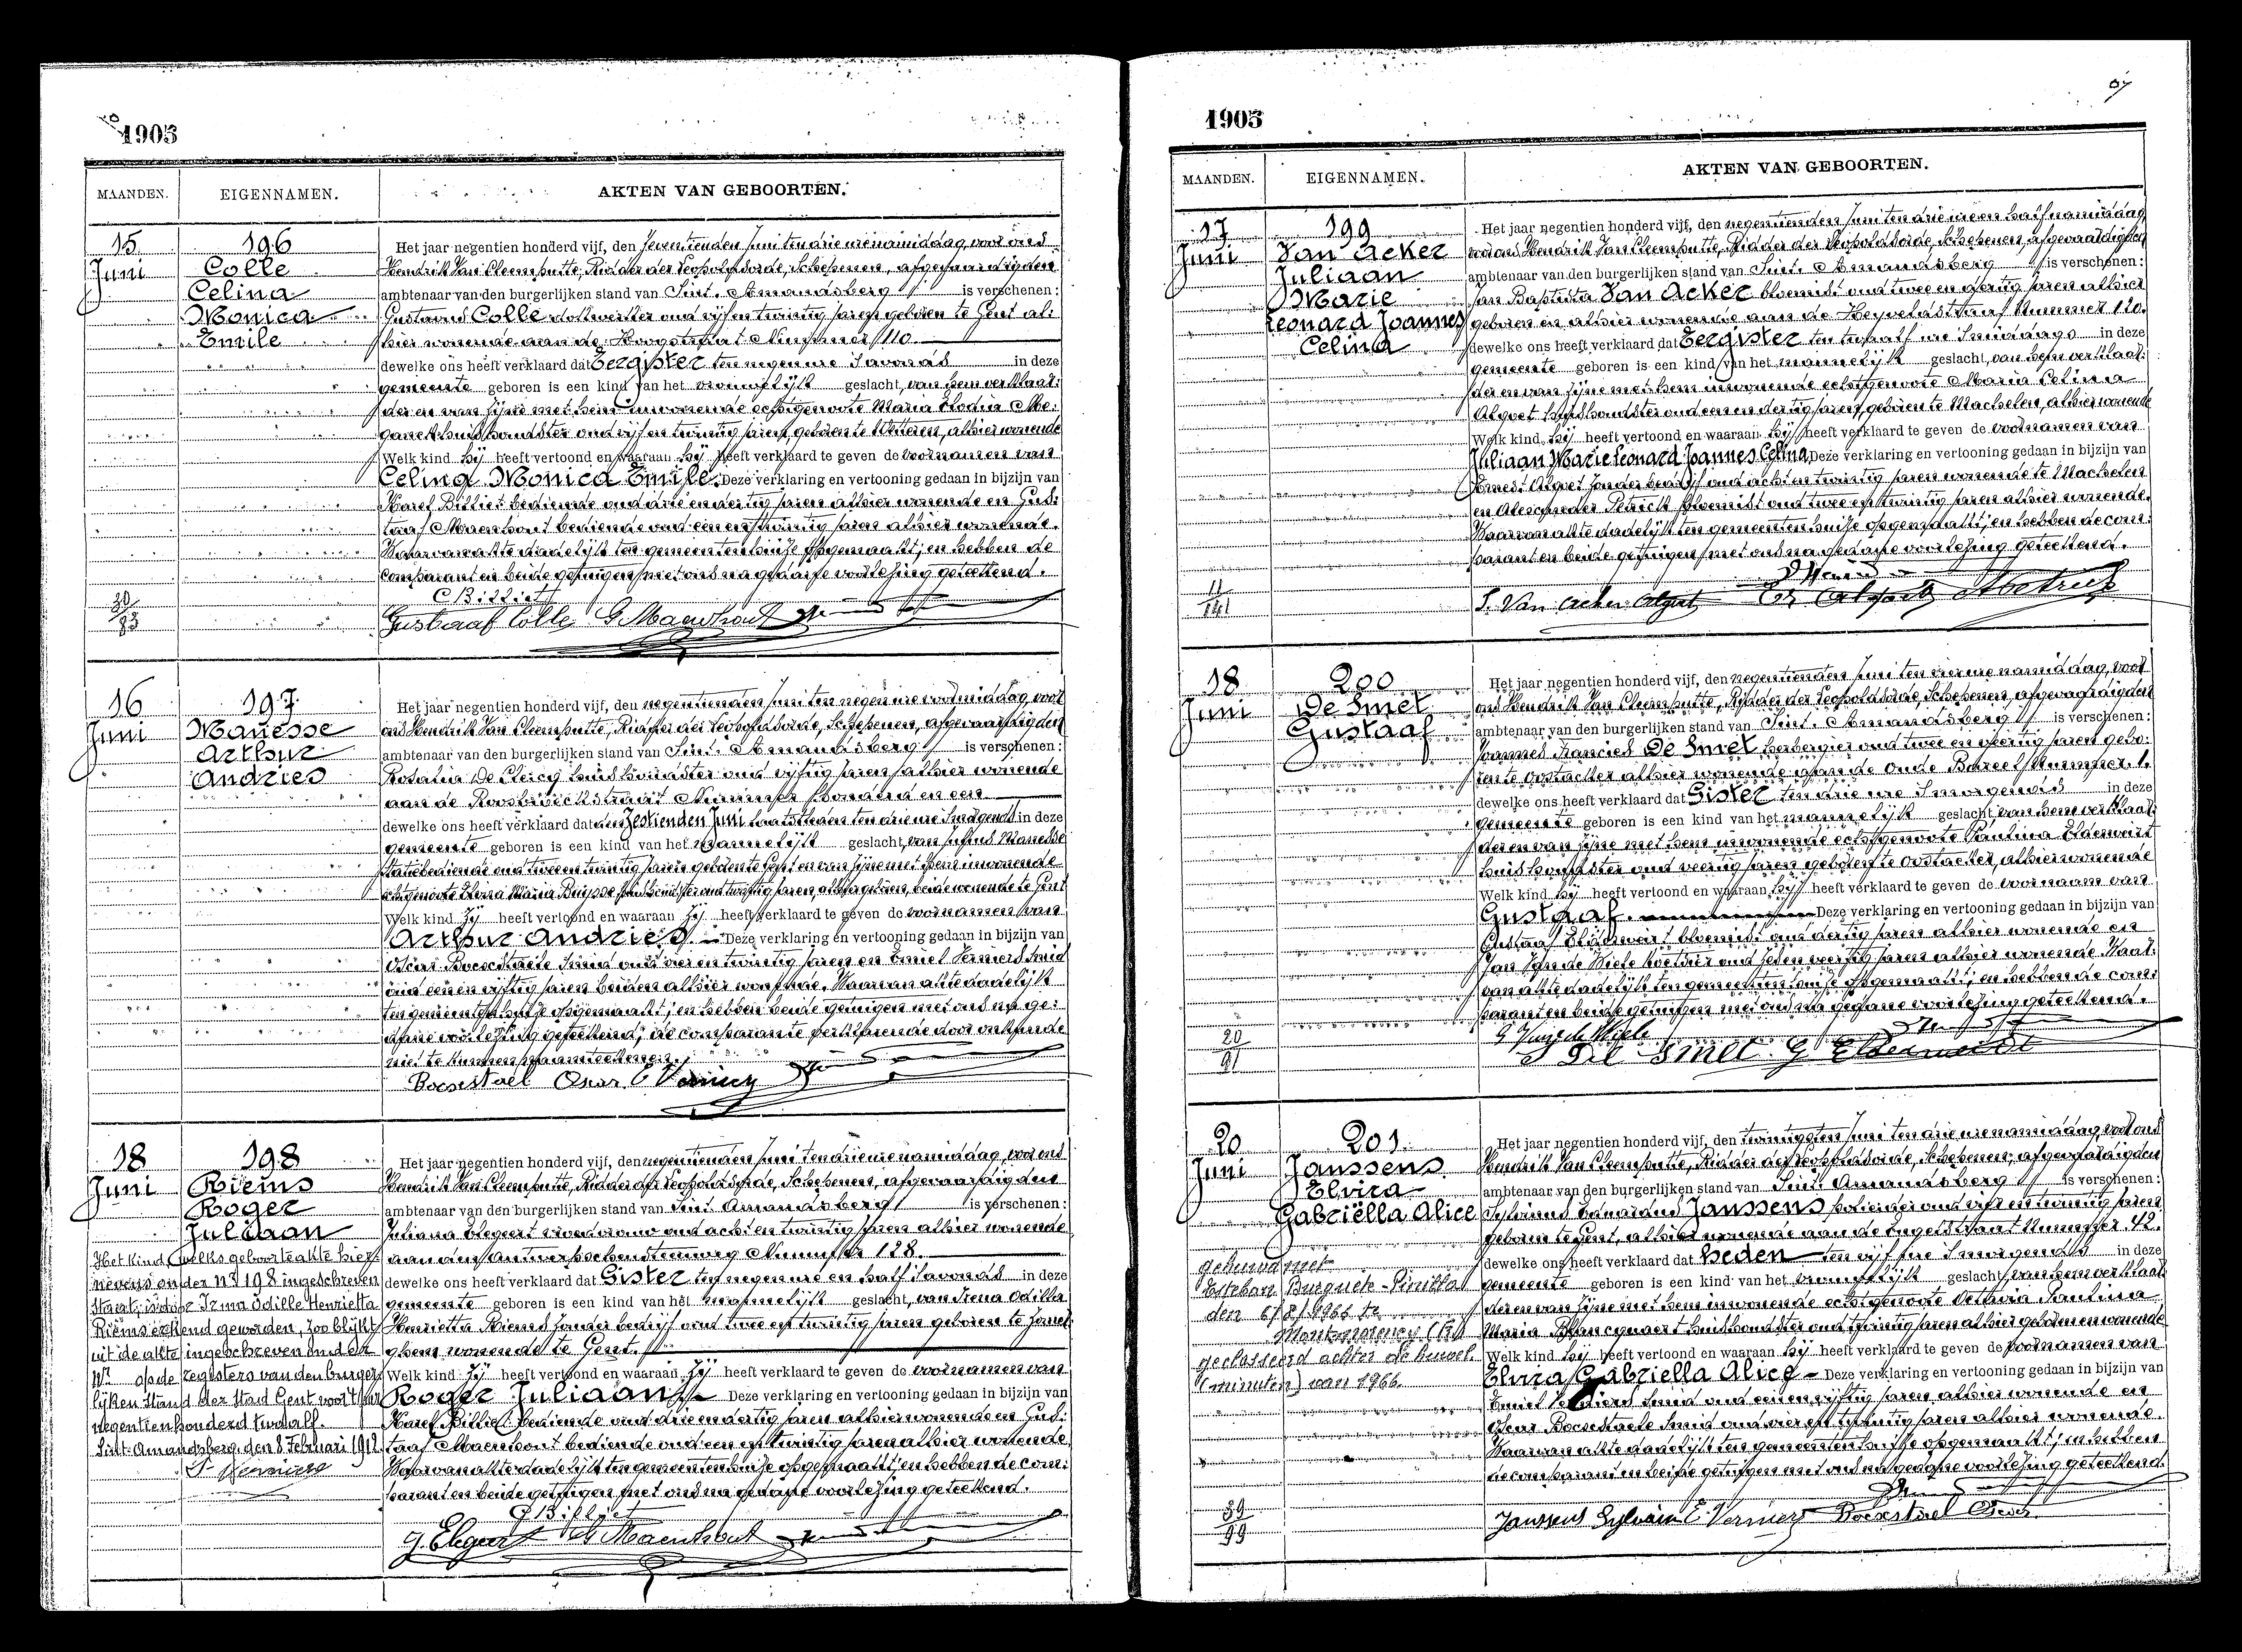 1905
MAANDEN.
EIGENNAMEN.
AKTEN VAN GEBOORTEN.
15
Juni
196
Colle
Celina
Monica
Emile
Het jaar negentien honderd vijf, den seventienden Juni ten drie ure namiddag, voor ons
Hendrik Van Cleemputte, Ridder der Leopoldsorde, Schepenen, afgevaardigden
ambtenaar van den burgerlijken stand van Sint. Amandsberg is verschenen:
Gustavus Colle oud vijf en twintig jaren geboren te Gent al:
hier wonende aan de Hoogstraat Nummer 110.
dewelke ons heeft verklaard dat Eergister ten negen ure s'avonds in deze
gemeente geboren is een kind van het vrouwelijk geslacht, van hem verklaar:
der en van zijne met hem inwonende echtgenoote Maria Elodia Me:
ganck huishoudster oud vijf en twintig jaren, geboren te Wetteren, alhier wonende
Welk kind hij heeft vertoond en waaraan hij heeft verklaard te geven de voornamen van
Celina Monica Emile. Deze verklaring en vertooning gedaan in bijzijn van
Karel Billiet bediende oud drie en dertig jaren alhier wonende en Gus:
taaf Maenhout bediende oud een en twintig jaren alhier wonende.
Waarvan akte dadelijk ten gemeentenhuize opgemaakt; en hebben de
comparant en beide getuigen met ons na gedane voorlezing geteekend.
C Billiet
Gustaaf Colle G. Maenhout
20/83
16
Juni
197
Manesse
Arthur
Andries
Het jaar negentien honderd vijf, den negentienden Juni ten negen ure voormiddag, voor
ons Hendrik Van Cleemputte, Ridder der Leopoldsorde, Schepenen, afgevaardigden
ambtenaar van den burgerlijken stand van Sint. Amandsberg is verschenen:
Rosalia De Clercq huishoudster oud vijftig jaren alhier wonende
aan de Nummer honderd en een
dewelke ons heeft verklaard dat den Zestienden Juni laatstleden ten drie ure s'morgends in deze
gemeente geboren is een kind van het mannelijk geslacht, van Manesse
oud twee en twintig jaren geboren te Gent en van zijne met hem inwonende
echtgenoote Maria Buysse huishoudster oud twintig jaren, alhier geboren, beide wonende te Gent
Welk kind zij heeft vertoond en waaraan zij heeft verklaard te geven de voornamen van
Arthur Andries. Deze verklaring en vertooning gedaan in bijzijn van
Oscar Bocxstaele Smid oud vier en twintig jaren en Emiel Verniers Smid
oud een en vijftig jaren beiden alhier wonende. Waarvan akte dadelijk
ten gemeentenhuize opgemaakt; en hebben beide getuigen met ons na ge:
dane voorlezing geteekend; de comparante verklarende door onkunde
niet te kunnen naamteekenen.
Bocxstael Oscar E Verniers
18
Juni
198
Riems
Roger
Juliaan
Het jaar negentien honderd vijf, den negentienden Juni ten drie ure namiddag, voor ons
Hendrik Van Cleemputte, Ridder der Leopoldsorde, Schepenen, afgevaardigden
ambtenaar van den burgerlijken stand van Sint Amandsberg is verschenen:
Juliana Elegeert vroedvrouw oud acht en twintig jaren alhier wonende
aan den Antwerpschensteenweg Nummer 128.
dewelke ons heeft verklaard dat Gister ten negen ure en half s'avonds in deze
gemeente geboren is een kind van het mannelijk geslacht, van Irma Odilla
Henrietta Riems zonder bedrijf oud twee en twintig jaren geboren te
wonende te Gent.
Welk kind zij heeft vertoond en waaraan zij heeft verklaard te geven de voornamen van
Roger Juliaan Deze verklaring en vertooning gedaan in bijzijn van
Karel Billiet bediende oud drie en dertig jaren alhier wonende en Gus:
taaf Maenhout bediende oud een en twintig jaren alhier wonende.
Waarvan akte dadelijk ten gemeentenhuize opgemaakt; en hebben de com:
parant en beide getuigen met ons na gedane voorlezing geteekend.
Het kind welks geboorteakte hier:
nevens onder nr 198 ingeschreven
staat, is door Irma Odille Henrietta
Riems erkend geworden, zoo blijkt
uit de akte ingeschreven onder
Nr op de registers van den burger:
lijken Stand der Stad Gent voor 't jaar
negentienhonderd twaalf.
Sint-Amandsberg, den 8 Februari 1912.
C Billiet
J. Elegeert G. Maenhout
1905
MAANDEN.
EIGENNAMEN.
AKTEN VAN GEBOORTEN.
17
Juni
199
Van Acker
Juliaan
Marie
Leonard Joannes
Celina
Het jaar negentien honderd vijf, den negentienden Juni ten drie ure en half namiddag,
voor ons Hendrik Van Cleemputte, Ridder der Leopoldsorde, Schepenen, afgevaardigden
ambtenaar van den burgerlijken stand van Sint. Amandsberg is verschenen:
Jan Baptista Van Acker bloemist oud twee en dertig jaren alhier
geboren en alhier wonende aan de Heyveldstraat Nummer 120.
dewelke ons heeft verklaard dat Eergister ten twaalf ure s'middags in deze
gemeente geboren is een kind van het mannelijk geslacht, van hem verklaar:
der en van zijne met hem inwonende echtgenoote Maria Celina
Algoet huishoudster oud een en dertig jaren, geboren te Machelen, alhier wonende
Welk kind hij heeft vertoond en waaraan hij heeft verklaard te geven de voornamen van
Juliaan Marie Leonard Joannes Celina Deze verklaring en vertooning gedaan in bijzijn van
Ernest Algoet zonder bedrijf oud acht en twintig jaren wonende te Machelen
en Alexander Petrick bloemist oud twee en twintig jaren alhier wonende.
Waarvan akte dadelijk ten gemeentenhuize opgemaakt; en hebben de com:
parant en beide getuigen met ons na gedane voorlezing geteekend.
11/141
J. Van Acker Algoet
18
Juni
200
De Smet
Gustaaf
Het jaar negentien honderd vijf, den negentienden Juni ten vier ure namiddag, voor
ons Hendrik Van Cleemputte, Ridder der Leopoldsorde, Schepenen, afgevaardigden
ambtenaar van den burgerlijken stand van Sint. Amandsberg is verschenen:
Joannes Francies De Smet herbergier oud twee en veertig jaren gebo:
ren te Oostacker alhier wonende aan de Oude Bareel Nummer 1.
dewelke ons heeft verklaard dat Gister ten drie ure s'morgends in deze
gemeente geboren is een kind van het mannelijk geslacht van hem verklaar:
der en van zijne met hem inwonende echtgenoote Paulina Elderweirt
huishoudster oud veertig jaren geboren te Oostacker, alhier wonende
Welk kind hij heeft vertoond en waaraan hij heeft verklaard te geven de voornaam van
Gustaaf. Deze verklaring en vertooning gedaan in bijzijn van
Gustaaf Elderweirt bloemist oud dertig jaren alhier wonende en
Jan Van de Wiele oud zeven en veertig jaren alhier wonende. Waar:
van akte dadelijk ten gemeentenhuize opgemaakt; en hebben de com:
parant en beide getuigen met ons na gedane voorlezing geteekend.
20/91
De Smet G Elderweirdt
20
Juni
201
Janssens
Elvira
Gabriëlla Alice
Het jaar negentien honderd vijf, den twintigsten Juni ten drie ure namiddag, voor ons
Hendrik Van Cleemputte, Ridder der Leopoldsorde, Schepenen, afgevaardigden
ambtenaar van den burgerlijken stand van Sint Amandsberg is verschenen:
Sylvinus Janssens oud vijf en twintig jaren
geboren te Gent, alhier wonende aan de Engelstraat Nummer 42.
dewelke ons heeft verklaard dat Heden ten vijf ure s'morgends in deze
gemeente geboren is een kind van het vrouwelijk geslacht, van hem verklaar:
der en van zijne met hem inwonende echtgenoote Octavia Paulina
Maria huishoudster oud twintig jaren alhier geboren en wonende
Welk kind hij heeft vertoond en waaraan hij heeft verklaard te geven de voornamen van
Elvira Gabriella Alice – Deze verklaring en vertooning gedaan in bijzijn van
Emiel Verniers Smid oud een en vijftig jaren alhier wonende en
Oscar Bocxstaele Smid oud vier en twintig jaren alhier wonende.
Waarvan akte dadelijk ten gemeentenhuize opgemaakt; en hebben
de comparant en beide getuigen met ons na gedane voorlezing geteekend.
gehuwd met
Esteban Burguete-Pinilla
den 6/8/1966 te
Montmorency (Fr)
geclasseerd achter de huwel.
(minuten) van 1966.
39/99
Janssens Sylvain E. Verniers Bocxstael Oscar